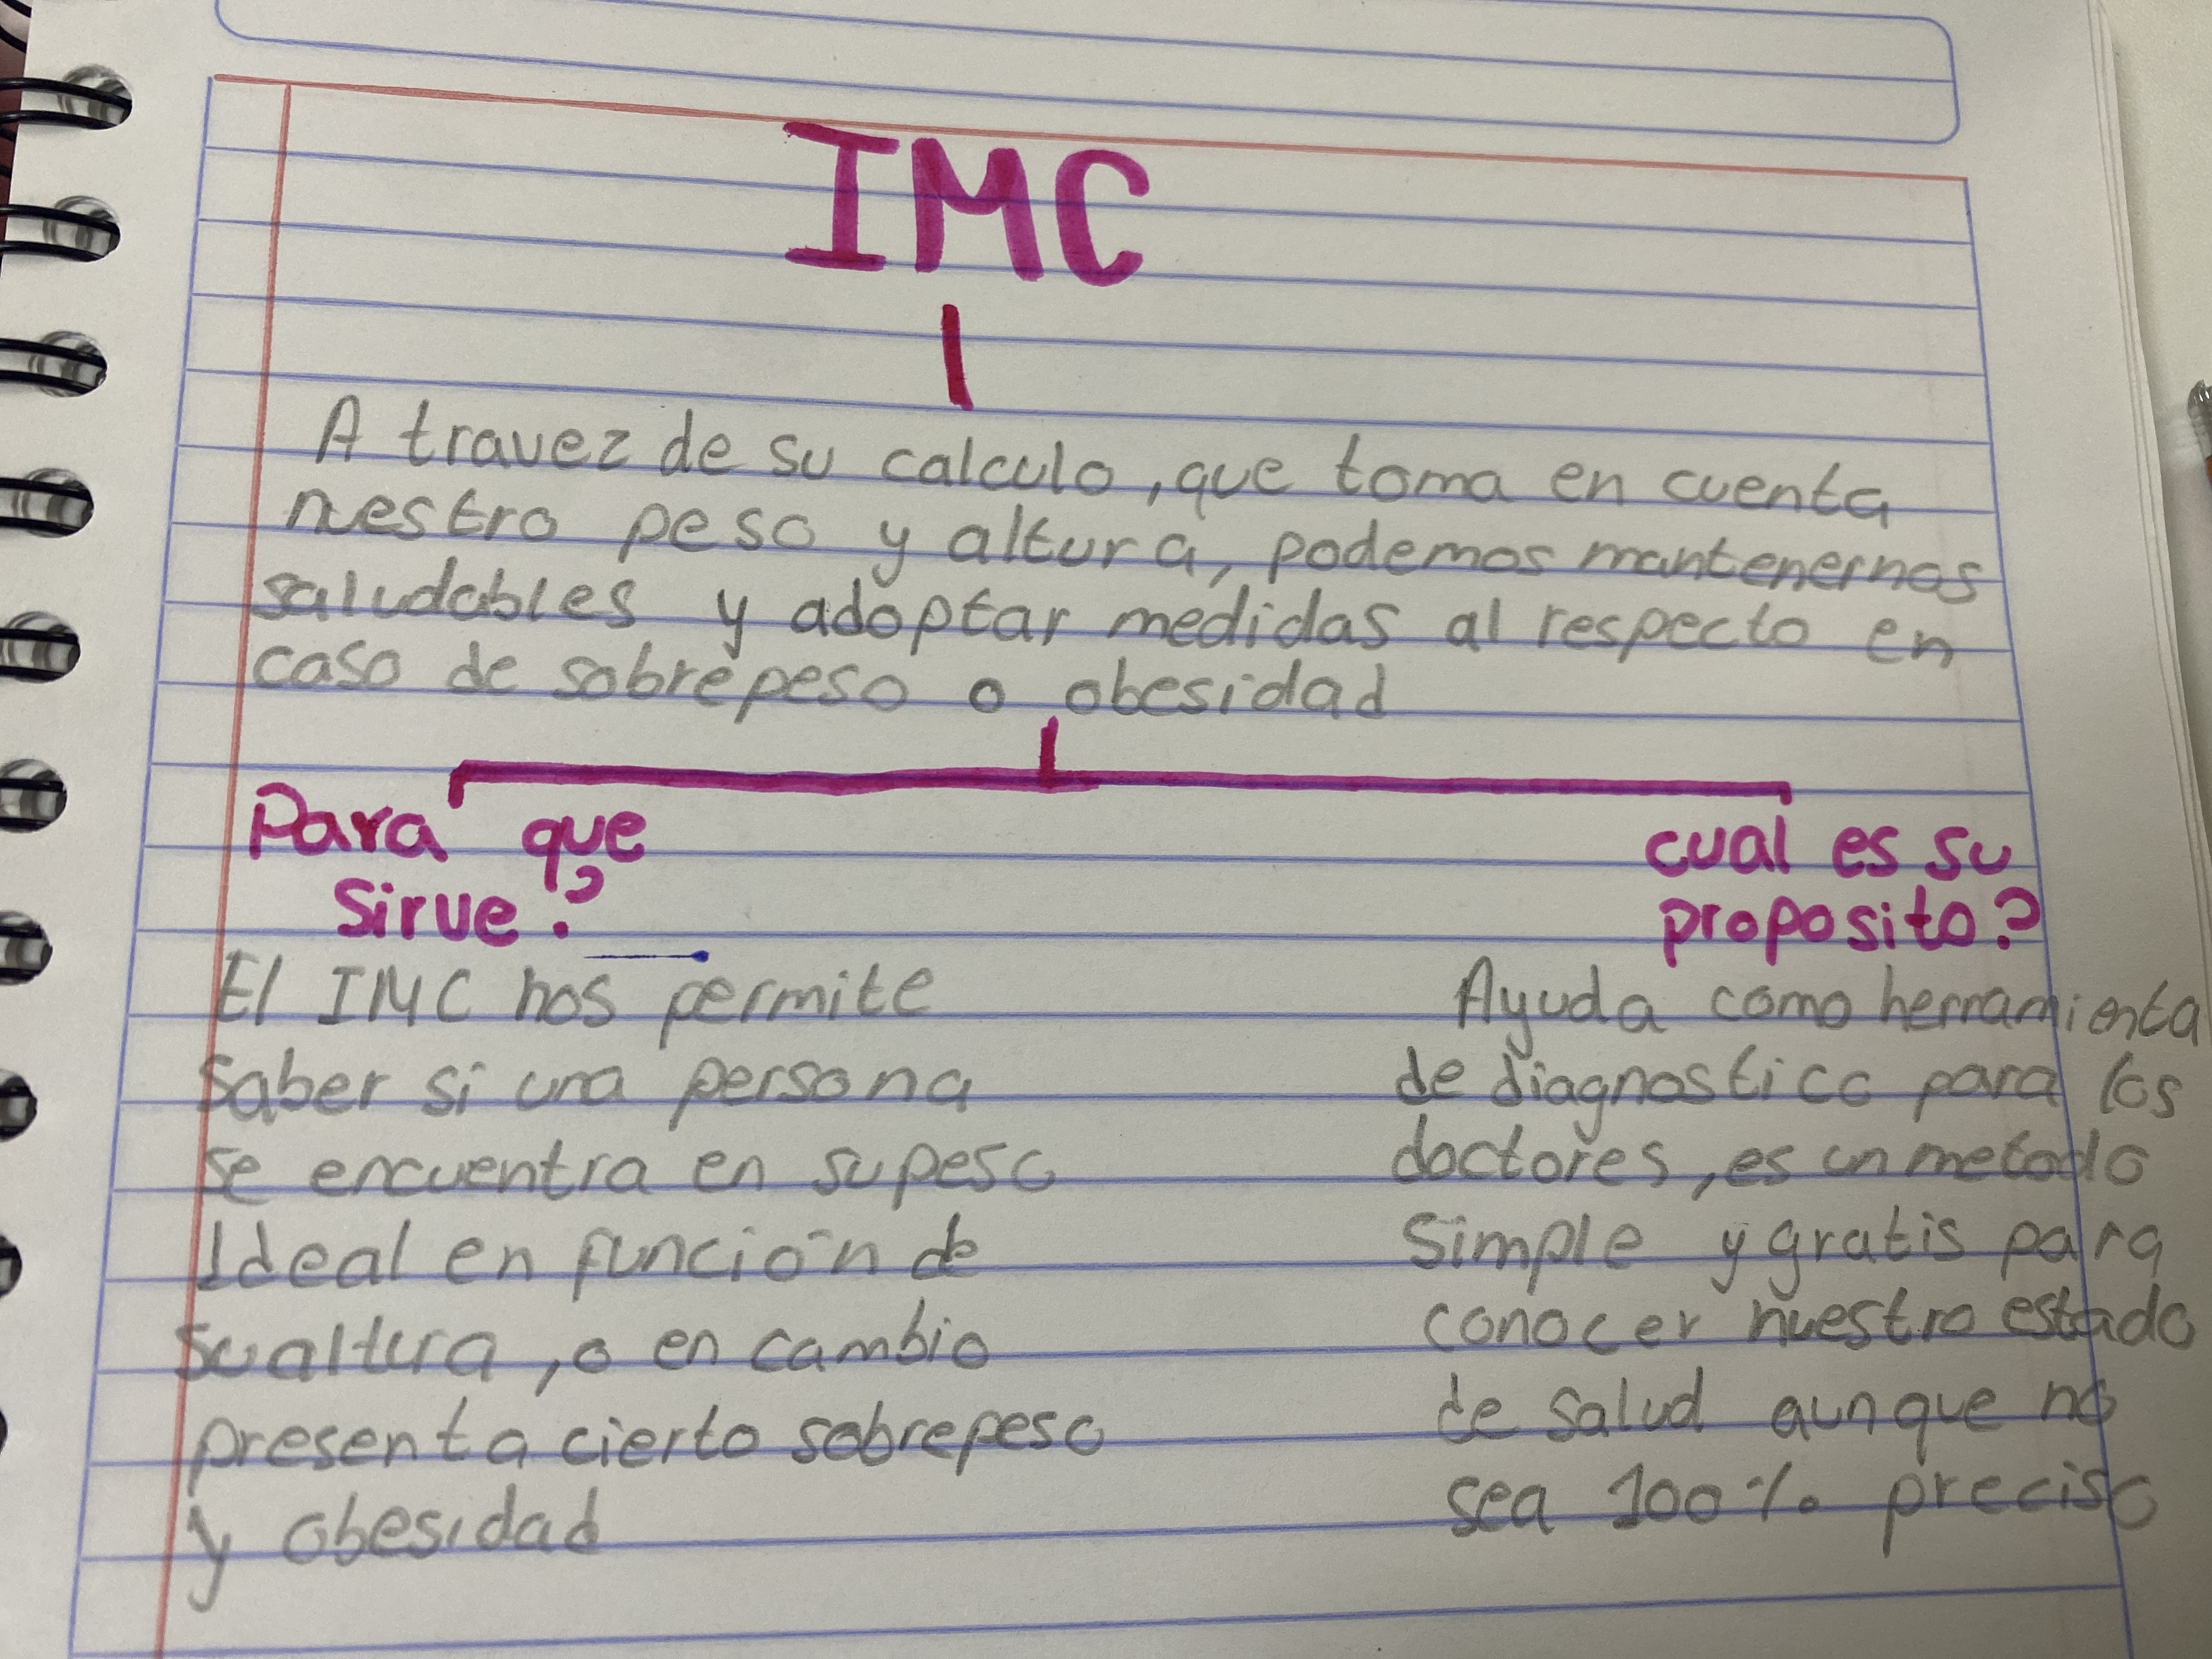 IMC
A travez de su calculo, que toma en cuenta
nuestro peso y altura, podemos mantenernos
saludables y adoptar medidas al respecto en
caso de sobrepeso o obesidad
Para que
sirve?
El IMC nos permite
saber si una persona
se encuentra en su peso
Ideal en función de
su altura, o en cambio
presenta cierto sobrepeso
y obesidad
cual es su
proposito?
Ayuda como herramienta
de diagnostico para los
doctores, es un metodo
simple y gratis para
conocer nuestro estado
de salud aunque no
sea 100% preciso